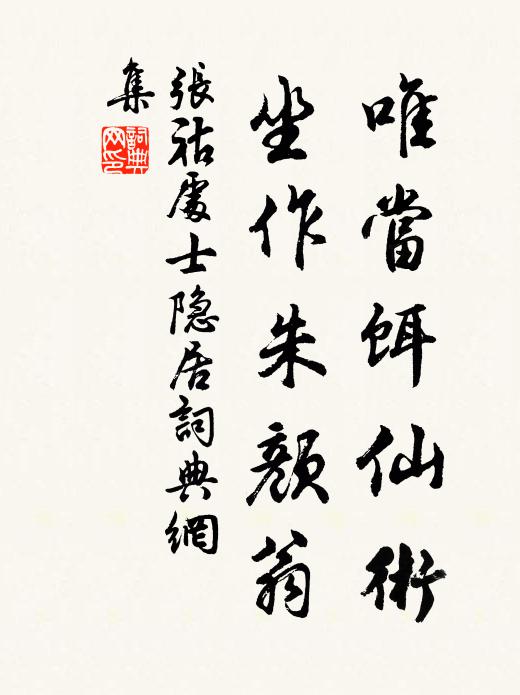 唯當餌仙術
坐作朱顏翁
張祜處士隐居詞典網
集
詞典网印